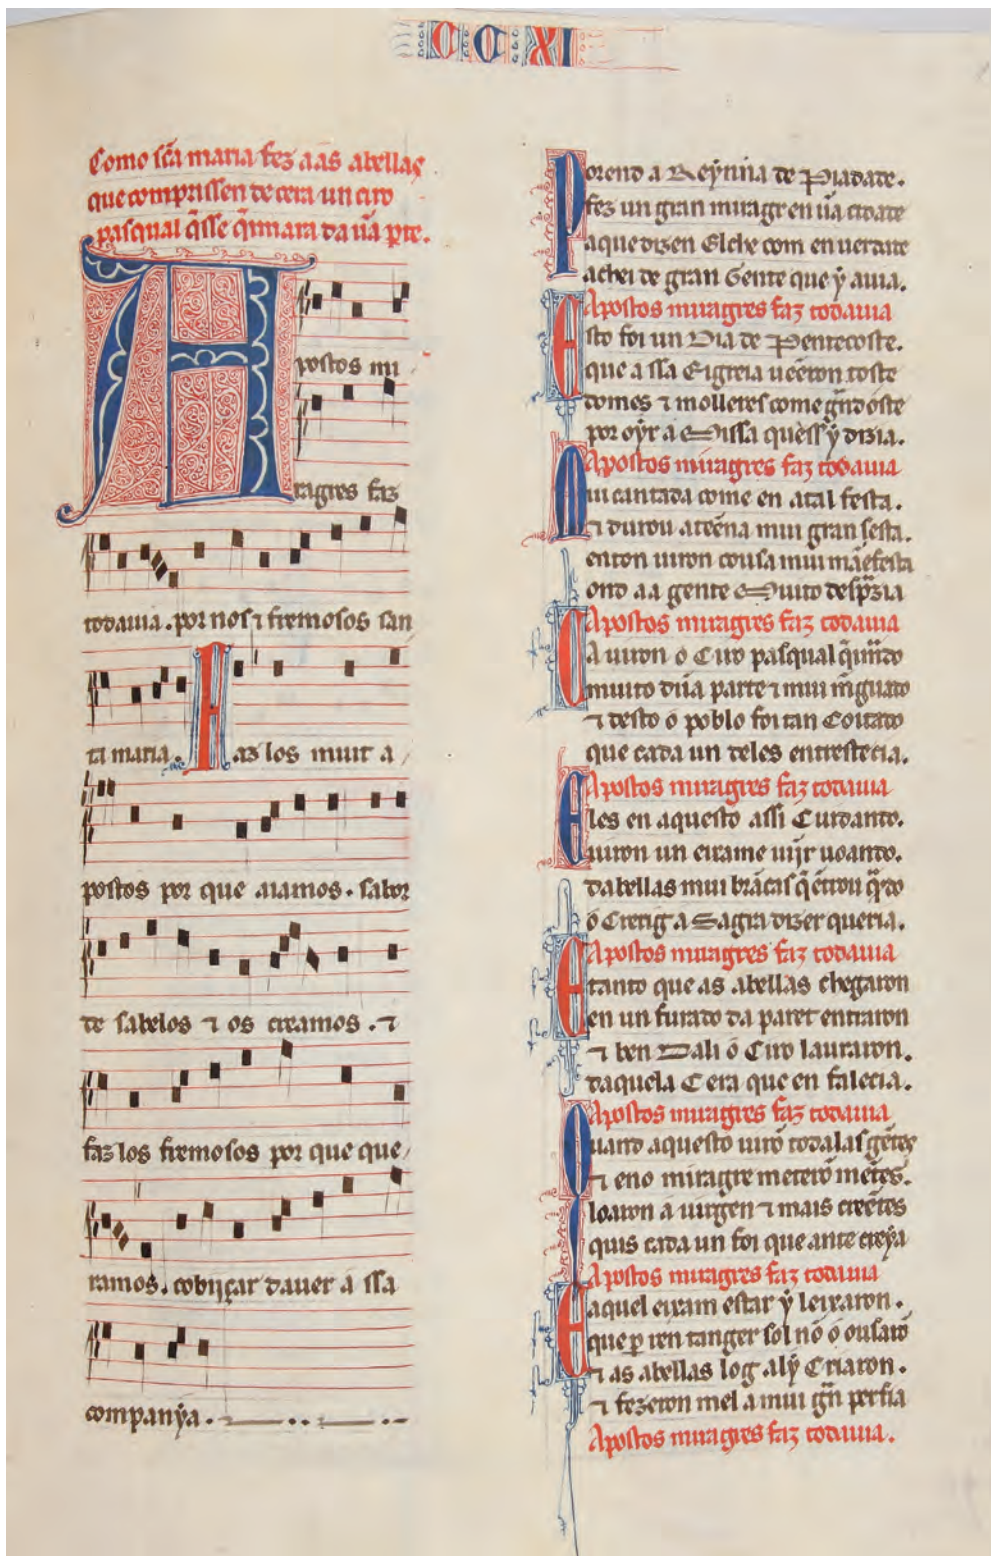 CCXI
Como sc̃a maria fez aas abellas
que comprissen de cera un cirio
pasqual q̃sse q̃imara da ũa p̃te.
Apostos mi
ragres faz
todauia. por nos ⁊ fremosos san
ta maria. Faz los muit a
postos por que aiamos. sabor
de sabelos ⁊ os creamos. ⁊
faz los fremosos por que que
ramos. cobijçar dauer a ssa
companỹa.
Porend a Reỹnna de Piadade.
fez un gran miragr en ũa cidade
a que dizen Elche com en uerdade
achei de gran Gente que ẏ auia.
Apostos miragres faz todauia
Esto foi un Dia de Pentecoste.
que a ssa Eigreia uẽeron toste
comes ⁊ molleres come gr̃nd oste
por oyr a Missa quess ẏ dizia.
Apostos miragres faz todauia
Mui cantada come en atal festa.
⁊ durou ateẽna mui gran sesta.
enton uiron cousa mui mãefesta
ond aa gente Muito desp̃zia
Apostos miragres faz todauia
Ca uiron o Cirio pasqual q̃imado
muito dũa parte ⁊ mui mĩguado
⁊ desto o poblo foi tan Coitado
que cada un deles entrestecia.
Apostos miragres faz todauia
Eles en aquesto assi Cuidando.
uiron un eixame uĩjr uoando.
dabellas mui brãcas q̃ entrou q̃ndo
o Crerig a Sagra dizer queria.
Apostos miragres faz todauia
E tanto que as abellas chegaron
en un furado da paret entraron
⁊ ben Dali o Cirio lauraron.
daquela Cera que en falecia.
Apostos miragres faz todauia
Quando aquesto uirõ todalas gẽtes
⁊ eno miragre meterõ mẽtes.
loaron a uirgen ⁊ mais creẽtes
quis cada un foi que ante creẏa
Apostos miragres faz todauia
E aquel eixam estar ẏ leixaron.
que p̲ ren tanger sol nõ o ousarõ
⁊ as abellas log alẏ Criaron.
⁊ fezeron mel a mui gr̃n perfia
Apostos miragres faz todauia.